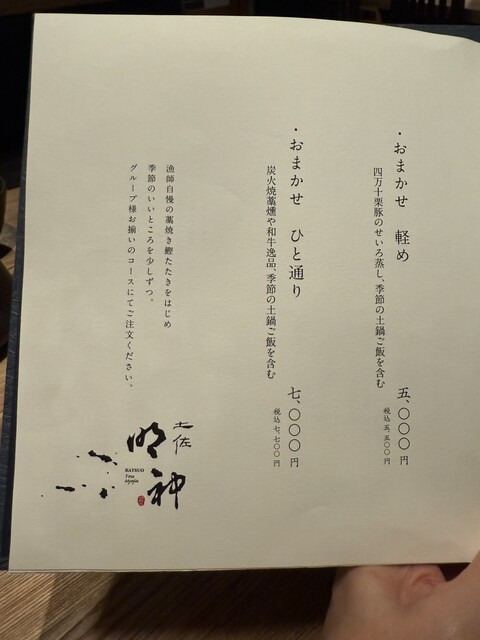 ・おまかせ　軽め
四万十栗豚のせいろ蒸し、季節の土鍋ご飯を含む
五、〇〇〇円
税込 五、五〇〇円
・おまかせ　ひと通り
炭火焼藁燻や和牛逸品、季節の土鍋ご飯を含む
七、〇〇〇円
税込 七、七〇〇円
漁師自慢の藁焼き鰹たたきをはじめ
季節のいいところを少しずつ。
グループ様お揃いのコースにてご注文ください。
土佐
明神
KATSUO
Tosa
Myojin